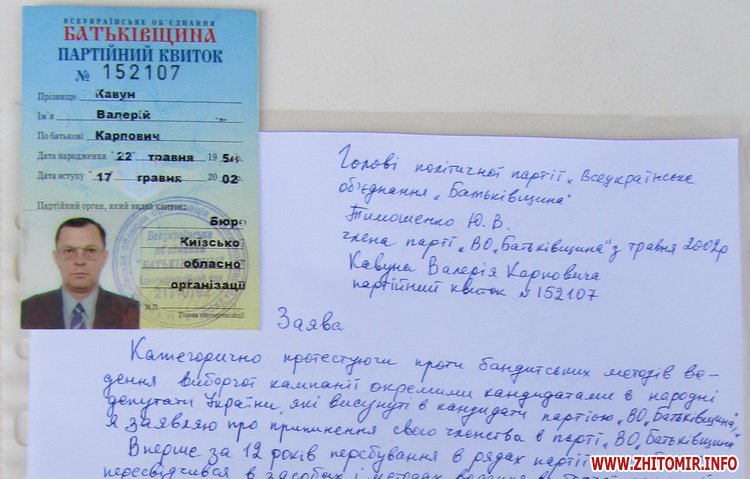 ВСЕУКРАЇНСЬКЕ ОБ'ЄДНАННЯ
БАТЬКІВЩИНА
ПАРТІЙНИЙ КВИТОК
№ 152107
Прізвище Кавун
Ім'я Валерій
По батькові Карпович
Дата народження "22" травня 1954р.
Дата вступу "17" травня 2002р.
Партійний орган, який видав квиток:
Бюро
Київсько
обласно
організації
М.П.
Голова парторганізації
Голові політичної партії „Всеукраїнське
об'єднання „Батьківщина"
Тимошенко Ю.В.
члена партії „ВО „Батьківщина" з травня 2002р
Кавуна Валерія Карповича
партійний квиток №152107
Заява
Категорично протестуючи проти бандитських методів ве-
дення виборчої кампанії окремими кандидатами в народні
депутати України, які висунуті в кандидати партією „ВО „Батьківщина",
я заявляю про припинення свого членства в партії „ВО „Батьківщина"
Вперше за 12 років перебування в рядах партії
пересвідчився в засобах і методах
WWW.ZHITOMIR.INFO